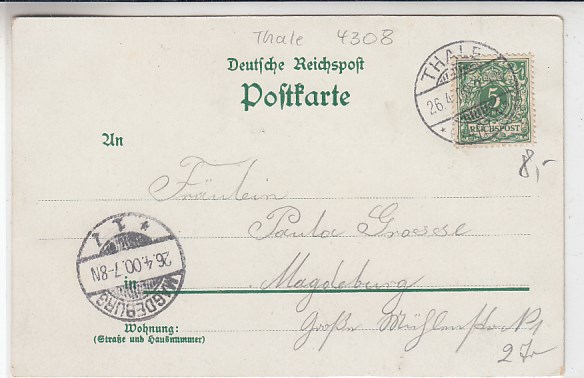 Thale 4308
Deutsche Reichspost
Postkarte
THALE
26.4.
5
REICHSPOST
8,-
An
Fräulein
Paula Groesse
* 1 1
26.4.00.7-8N
MAGDEBURG
in Magdeburg
Wohnung:
(Straße und Hausnummer)
Große Mühlenstr.
27